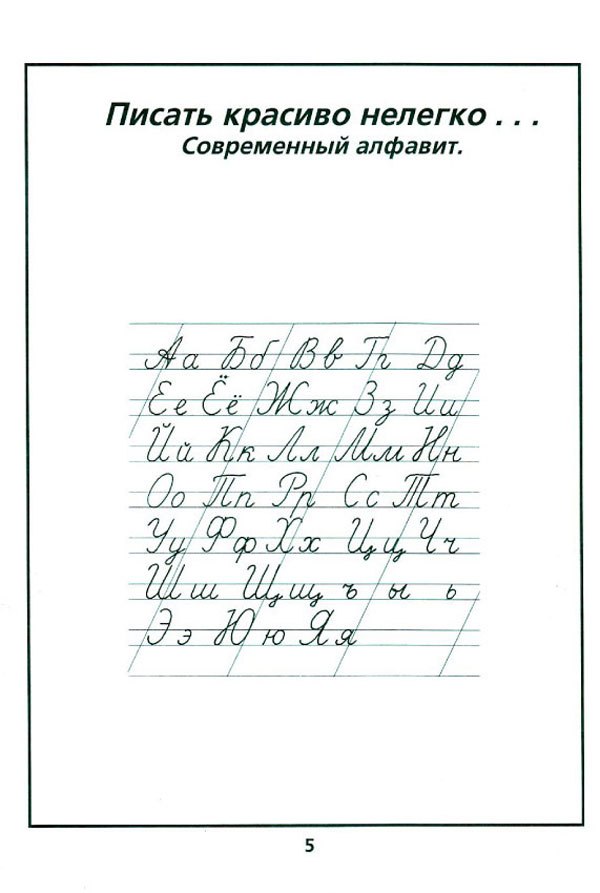 Писать красиво нелегко . . .
Современный алфавит.
Аа Бб Вв Гг Дд
Ее Ёё Жж Зз Ии
Йй Кк Лл Мм Нн
Оо Пп Рр Сс Тт
Уу Фф Хх Цц Чч
Шш Щщ ъ ы ь
Ээ Юю Яя
5